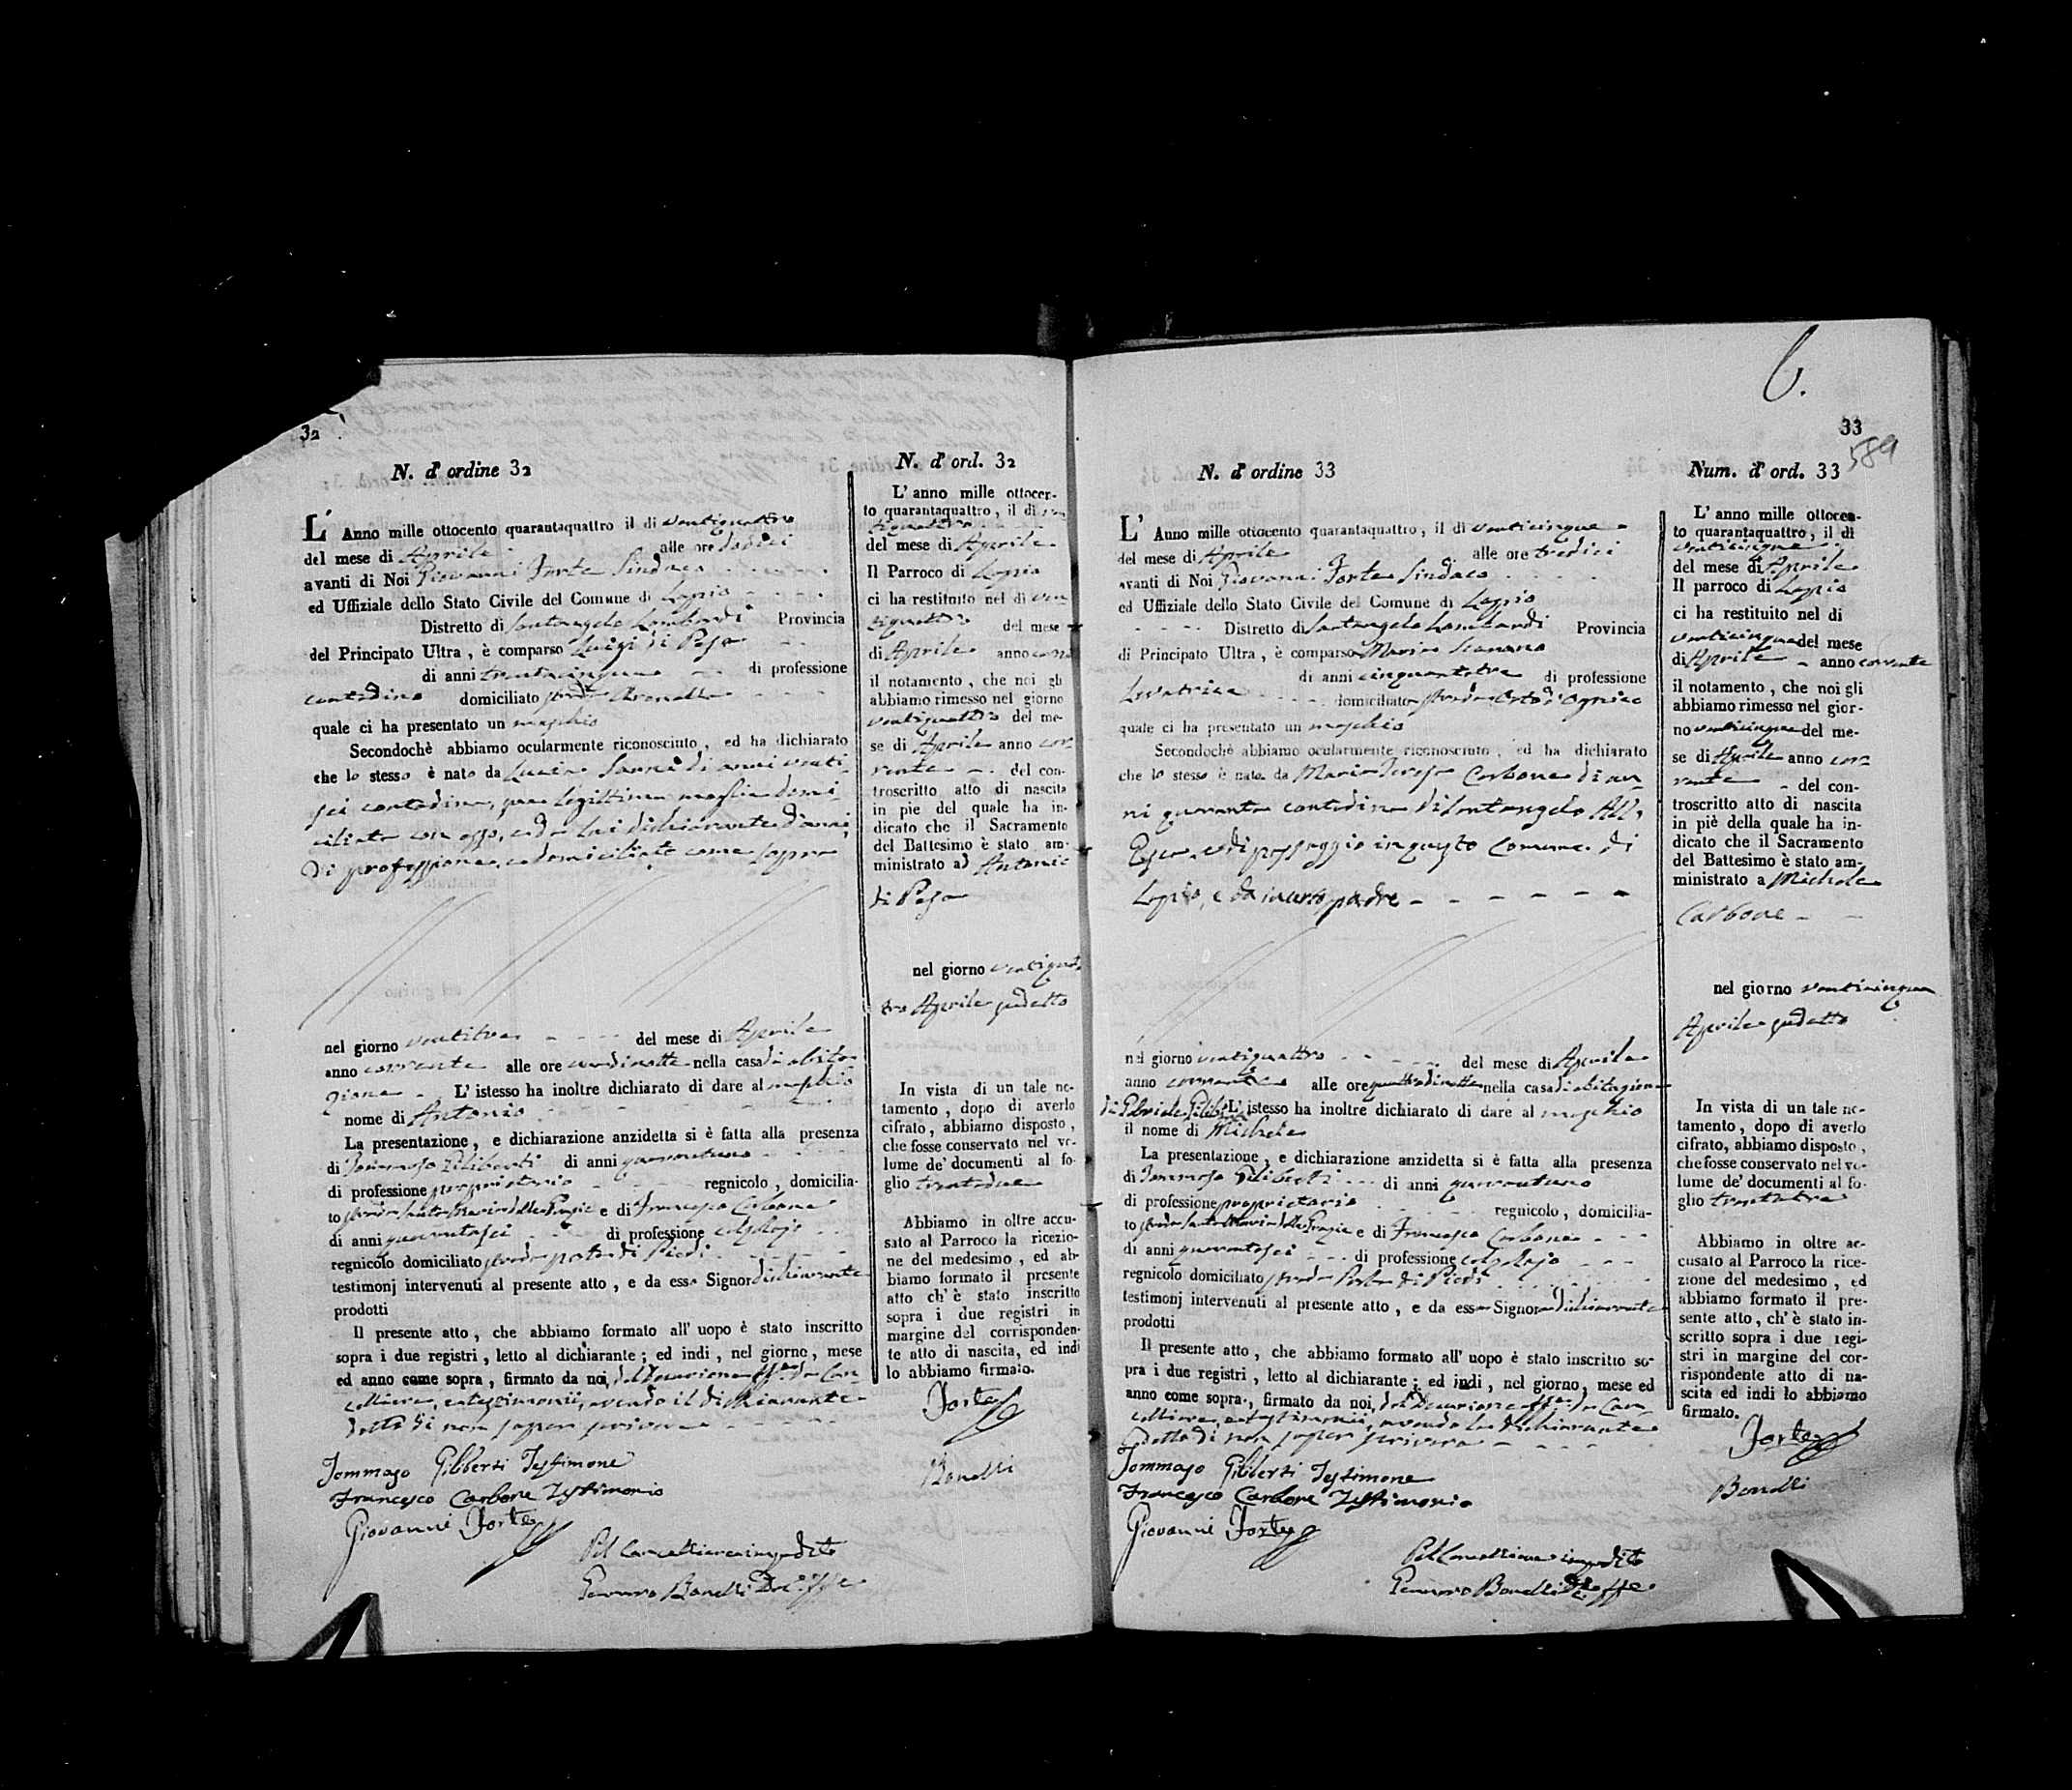 32
N. d'ordine 32
L' Anno mille ottocento quarantaquattro il di ventiquattro
del mese di Aprile alle ore dodici
avanti di Noi Giovanni Forte Sindaco
ed Uffiziale dello Stato Civile del Comune di Lapio
Distretto di Santangelo Lombardi Provincia
del Principato Ultra, è comparso Luigi di Peso
di anni trentacinque di professione
contadino domiciliato strada
quale ci ha presentato un maschio
Secondochè abbiamo ocularmente riconosciuto, ed ha dichiarato
che lo stesso è nato da Lucia di anni venti-
sei contadina, sua legittima moglie domi-
ciliata con esso, e da lui dichiarante d'anni,
di professione, e domiciliato come sopra
nel giorno ventitre del mese di Aprile
anno corrente alle ore undici notte nella casa di abita-
zione L'istesso ha inoltre dichiarato di dare al maschio
nome di Antonio
La presentazione, e dichiarazione anzidetta si è fatta alla presenza
di Tommaso Giliberti di anni quarantuno
di professione proprietario regnicolo, domicilia-
to strada Santa Maria delle Grazie e di Francesco Carbone
di anni quarantasei di professione calzolajo
regnicolo domiciliato strada di Piedi
testimonj intervenuti al presente atto, e da esso Signor dichiarante
prodotti
Il presente atto, che abbiamo formato all'uopo è stato inscritto
sopra i due registri, letto al dichiarante; ed indi, nel giorno, mese
ed anno come sopra, firmato da noi, dal Decurione ff.ne da Can-
celliere, e testimonii, avendo il dichiarante
detto di non saper scrivere
Tommaso Giliberti Testimone
Francesco Carbone Testimonio
Giovanni Forte
Pel Cancelliere impedito
Gennaro Bonelli
N. d' ord. 32
L'anno mille ottocen-
to quarantaquattro, il di ven
tiquattro
del mese di Aprile
Il Parroco di Lapio
ci ha restituito nel di ven
tiquattro del mese
di Aprile anno corre
il notamento, che noi gli
abbiamo rimesso nel giorno
ventiquattro del me-
se di Aprile anno cor-
rente del con-
troscritto atto di nascita
in piè del quale ha in-
dicato che il Sacramento
del Battesimo è stato am-
ministrato ad Antonio
di Peso
nel giorno ventiquat
tro Aprile sudetto
In vista di un tale no-
tamento, dopo di averlo
cifrato, abbiamo disposto,
che fosse conservato nel vo-
lume de' documenti al fo-
glio trentadue
Abbiamo in oltre accu-
sato al Parroco la ricezio-
ne del medesimo, ed ab-
biamo formato il presente
atto ch'è stato inscritto
sopra i due registri in
margine del corrisponden-
te atto di nascita, ed indi
lo abbiamo firmato.
Forte
Bonelli
6.
33
589
N. d'ordine 33
L' Anno mille ottocento quarantaquattro, il di venticinque
del mese di Aprile alle ore tredici
avanti di Noi Giovanni Forte Sindaco
ed Uffiziale dello Stato Civile del Comune di Lapio
Distretto di Santangelo Lombardi Provincia
di Principato Ultra, è comparso Maria Scanano
Levatrice di anni cinquantatre di professione
domiciliata strada Orto
quale ci ha presentato un maschio
Secondochè abbiamo ocularmente riconosciuto, ed ha dichiarato
che lo stesso è nato da Maria Teresa Carbone di an-
ni quaranta contadina di Santangelo All'
Esca, e di passaggio in questo Comune di
Lapio, e da incerto padre
nel giorno ventiquattro del mese di Aprile
anno corrente alle ore quattro di notte nella casa di abitazione
di Gabriele Giliberti L'istesso ha inoltre dichiarato di dare al maschio
il nome di Michele
La presentazione, e dichiarazione anzidetta si è fatta alla presenza
di Tommaso Giliberti di anni quarantuno
di professione proprietario regnicolo, domicilia-
to strada Santa Maria delle Grazie e di Francesco Carbone
di anni quarantasei di professione calzolajo
regnicolo domiciliato strada Porta di Piedi
testimonj intervenuti al presente atto, e da essa Signora dichiarante
prodotti
Il presente atto, che abbiamo formato all'uopo è stato inscritto so-
pra i due registri, letto al dichiarante; ed indi, nel giorno, mese ed
anno come sopra, firmato da noi, dal Decurione ff.ne da Can-
celliere, e testimonii, avendo la dichiarante
detto di non saper scrivere
Tommaso Giliberti Testimone
Francesco Carbone Testimonio
Giovanni Forte
Pel Cancelliere impedito
Gennaro Bonelli
Num. d' ord. 33
L'anno mille ottocen-
to quarantaquattro, il di
venticinque
del mese di Aprile
Il parroco di Lapio
ci ha restituito nel di
venticinque del mese
di Aprile anno corrente
il notamento, che noi gli
abbiamo rimesso nel gior-
no venticinque del me-
se di Aprile anno cor-
rente del con-
troscritto atto di nascita
in piè della quale ha in-
dicato che il Sacramento
del Battesimo è stato am-
ministrato a Michele
Carbone
nel giorno venticinque
Aprile sudetto
In vista di un tale no-
tamento, dopo di averlo
cifrato, abbiamo disposto,
che fosse conservato nel vo-
lume de' documenti al fo-
glio trentatre
Abbiamo in oltre ac-
cusato al Parroco la rice-
zione del medesimo, ed
abbiamo formato il pre-
sente atto, ch'è stato in-
scritto sopra i due regi-
stri in margine del cor-
rispondente atto di na-
scita ed indi lo abbiamo
firmato.
Forte
Bonelli